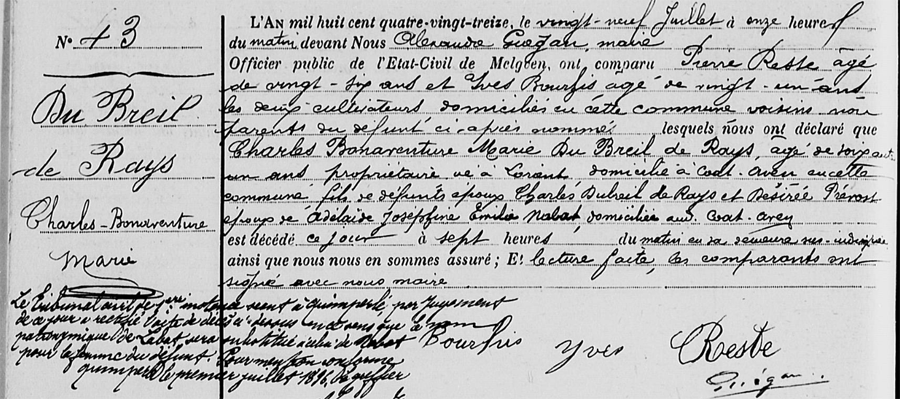 N° 43
Du Breil
de Rays
Charles-Bonaventure
Marie
L'AN mil huit cent quatre-vingt-treize, le vingt-neuf Juillet à onze heures
du matin, devant Nous Alexandre Guégan, maire
Officier public de l'Etat-Civil de Melgven, ont comparu Pierre Reste âgé
de vingt-six ans et Yves Bourhis agé de vingt-un-ans
les deux cultivateurs domiciliés en cette commune voisins non
parents du défunt ci-après nommé lesquels nous ont déclaré que
Charles Bonaventure Marie Du Breil de Rays, agé de soixante
un ans, propriétaire né à Lorient domicilié à Coat-Aven en cette
commune, fils de défunts époux Charles Dubreil de Rays et Désirée Prévost
époux de Adélaïde Joséphine Emilie Nabat, domiciliée aud. Coat-Aven
est décédé ce jour à sept heures du matin en sa demeure sus-indiquée
ainsi que nous nous en sommes assuré; Et lecture faite, les comparants ont
signé avec nous maire
Le Tribunal civil de 1ère instance séant à Quimperlé par Jugement
de ce jour a rectifié l'acte de décès ci-dessus en ce sens que le nom
patronymique de Labat sera substitué à celui de Nabat
pour la femme du défunt Pour mention conforme
Quimperlé le premier juillet 1896, Le greffier
Bourhis Yves Reste
Guégan